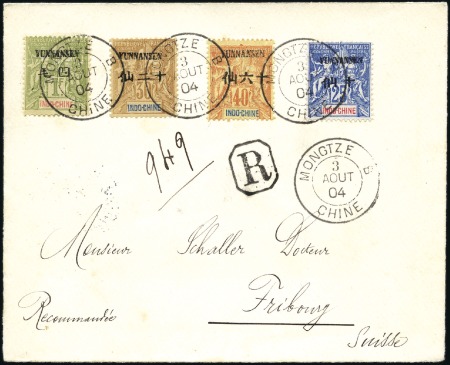 YUNNANSEN YUNNANSEN YUNNANSEN YUNNANSEN
四毛 仙二十 仙六十 仙十
30 40 25
INDO-CHINE INDO-CHINE INDO-CHINE INDO-CHINE
MONGTZE B
3
AOUT
04
CHINE
MONGTZE B
3
AOUT
04
CHINE
MONGTZE B
3
AOUT
04
CHINE
949
R
MONGTZE B
3
AOUT
04
CHINE
Monsieur Schaller Docteur
Recommandée
Fribourg
Suisse